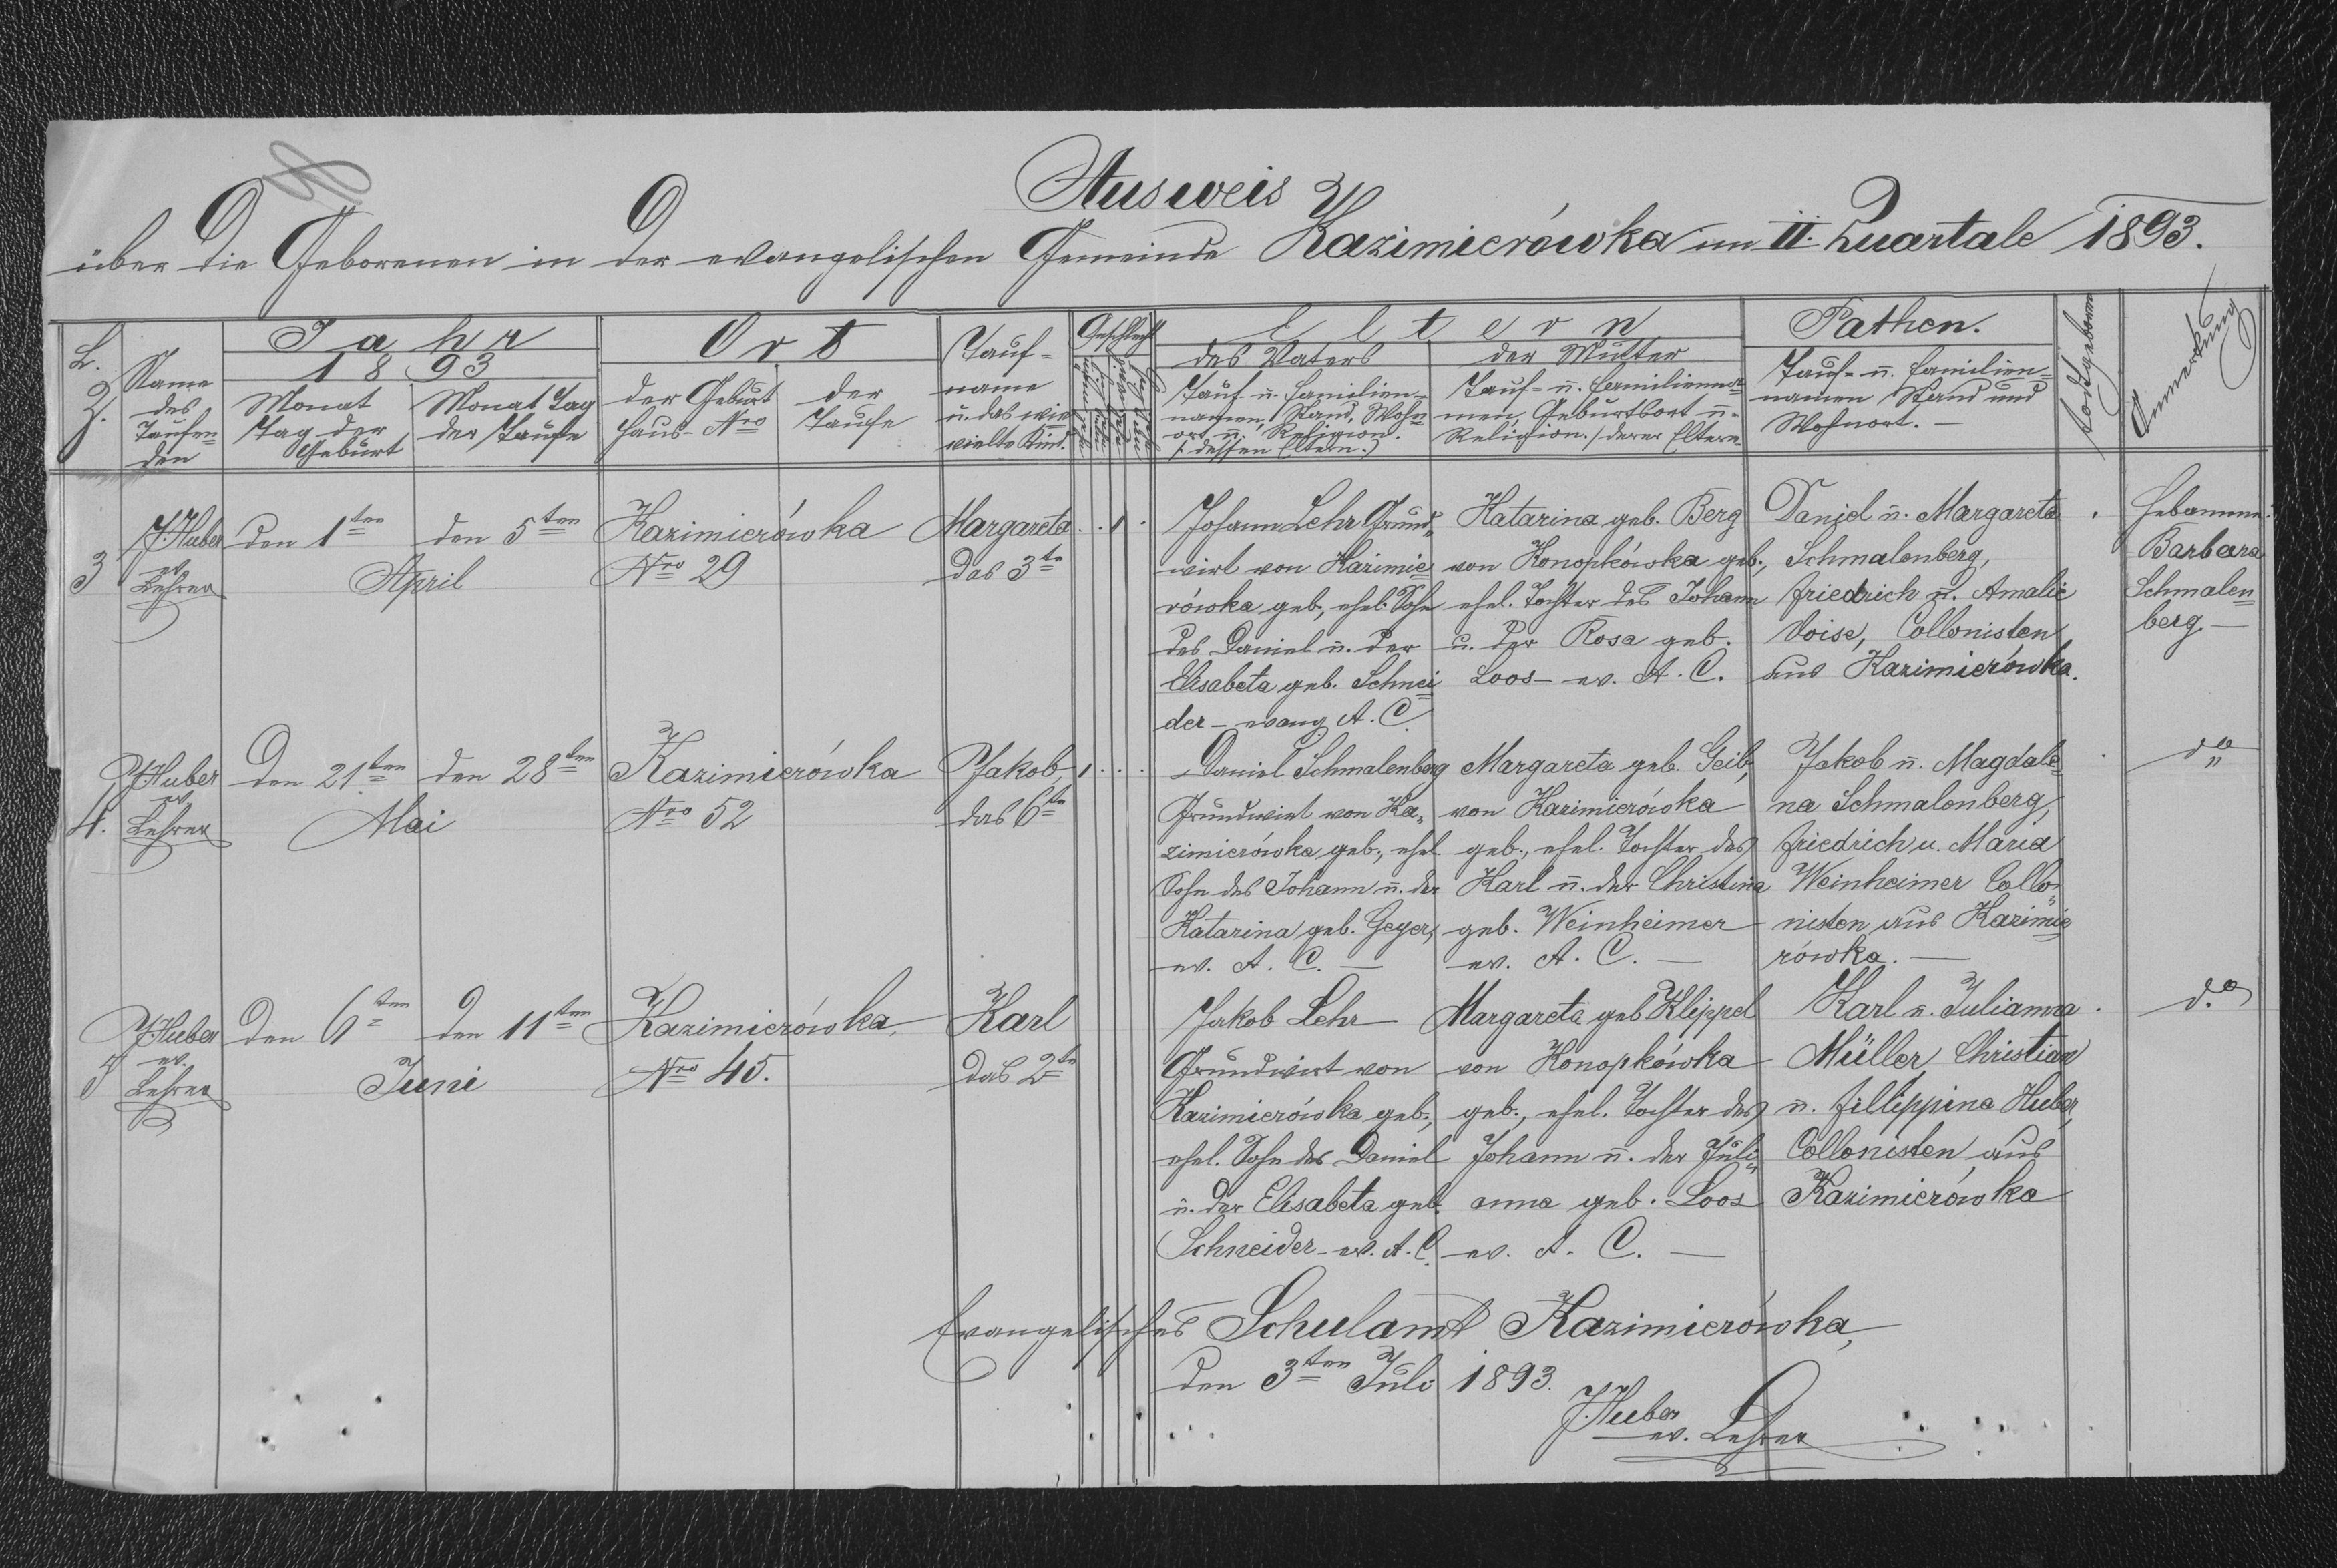 Ausweis
über die Geborenen in der evangelischen Gemeinde Kazimierówka im II. Quartale 1893.
L. Z.
Name des Taufenden
Jahr 1893
Monat Tag der Geburt
Monat Tag der Taufe
Ort
der Geburt Haus-Nro
der Taufe
Taufname u. das wievielte Kind.
Geschlecht
Eltern
des Vaters
Tauf- u. Familiennamen, Stand, Wohnort u. Religion. (: dessen Eltern.)
der Mutter
Tauf- u. Familiennamen, Geburtsort u. Religion. / derer Eltern
Pathen.
Tauf- u. Familiennamen Stand und Wohnort. —
todtgeboren
Anmerkung
3
J. Huber
ev.
Lehrer
den 1ten
den 5ten
April
Kazimierówka
Nro 29
Margareta
das 3te
1
Johann Lehr Grund„
wirt von Kazimie=
rówka geb., ehel. Sohn
des Daniel u. der
Elisabeta geb. Schnei=
der – evang. A. C.
Katarina geb. Berg
von Konopkówka geb.,
ehel. Tochter des Johann
u. der Rosa geb.
Loos – ev. A. C.
Daniel u. Margareta
Schmalenberg,
Friedrich u. Amalie
Voise, Collonisten
aus Kazimierówka.
Hebamme:
Barbara
Schmalen=
berg —
4.
J. Huber
ev.
Lehrer
Den 21.ten
den 28ten
Mai
Kazimierówka
Nro 52
Jakob,
das 6te
1
Daniel Schmalenberg
Grundwirt von Ka„
zimierówka geb., ehel.
Sohn des Johann u. der
Katarina geb. Geyer,
ev. A. C. —
Margareta geb. Geib,
von Kazimierówka
geb., ehel. Tochter des
Karl u. der Christina
geb. Weinheimer
ev. A. C. —
Jakob u. Magdale=
na Schmalenberg,
Friedrich u. Maria
Weinheimer Collo„
nisten aus Kazimie=
rówka. —
do
5
J. Huber
ev.
Lehrer
Den 6ten
den 11ten
Juni
Kazimierówka
Nro 45.
Karl
das 2te
Jakob Lehr
Grundwirt von
Kazimierówka geb.,
ehel. Sohn des Daniel
u. der Elisabeta geb.
Schneider – ev. A. C.
Margareta geb Klippel
von Konopkówka
geb., ehel. Tochter des
Johann u. der Juli„
anna geb. Loos
ev. A. C. —
Karl u. Julianna
Müller, Christian
u. Fillippina Huber,
Collonisten aus
Kazimierówka
d.o
Evangelisches Schulamt Kazimierówka,
den 3ten Juli 1893.
J. Huber
ev. Lehrer